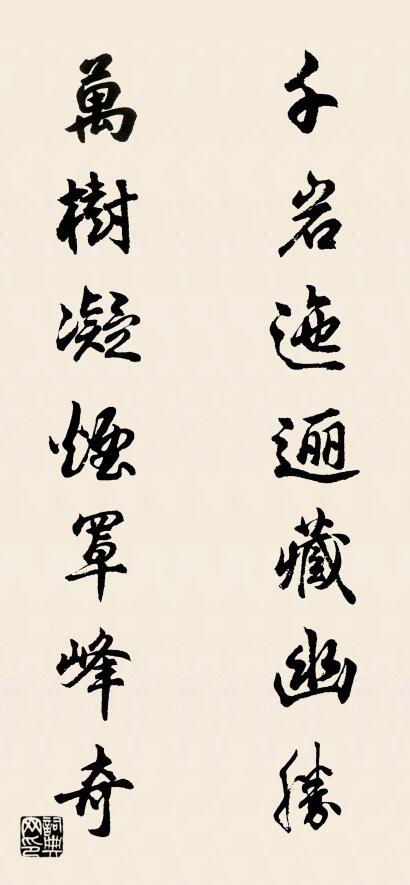 千岩迤逦藏幽勝
萬樹凝煙罩峰奇
詞典網印